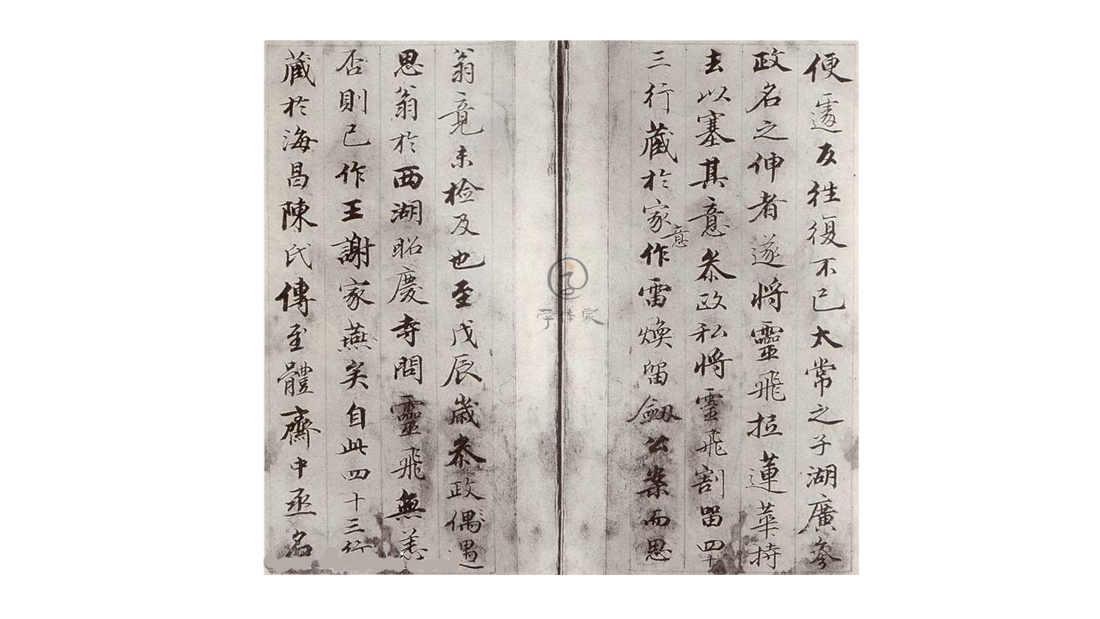 便遽反往復不已太常之子湖廣參
政名之伸者遂將靈飛拉蓮華持
去以塞其意叅政私將靈飛割留四十
三行藏於家意作雷煥留劔公案而思
翁竟未檢及也至戊辰歲叅政偶遇
思翁於西湖昭慶寺問靈飛無恙
否則已作王謝家燕矣自此四十三行
藏於海昌陳氏傳至體齊中丞名
字体家